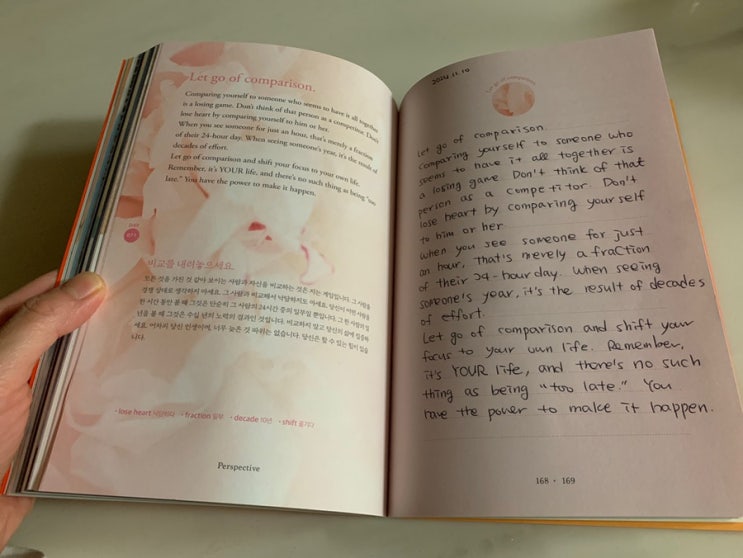 Let go of comparison.
Comparing yourself to someone who seems to have it all together
is a losing game. Don't think of that person as a competitor. Don't
lose heart by comparing yourself to him or her.
When you see someone for just an hour, that's merely a fraction
of their 24-hour day. When seeing someone's year, it's the result of
decades of effort.
Let go of comparison and shift your focus to your own life.
Remember, it's YOUR life, and there's no such thing as being "too
late." You have the power to make it happen.
DAY
비교를 내려놓으세요.
모든 것을 가진 것 같아 보이는 사람과 자신을 비교하는 것은 지는 게임입니다. 그 사람을
경쟁 상대로 생각하지 마세요. 그 사람과 비교해서 낙담하지도 마세요. 당신이 어떤 사람을
한 시간 동안 볼 때 그것은 단순히 그 사람의 24시간 중의 일부일 뿐입니다. 그 한 사람의 일
년을 볼 때 그것은 수십 년의 노력의 결과인 것입니다. 비교하지 말고 당신의 삶에 집중하
세요. 어차피 당신 인생이며, 너무 늦은 것 따위는 없습니다. 당신은 할 수 있는 힘이 있습
니다.
• lose heart 낙담하다 • fraction 일부 • decade 10년 • shift 옮기다
Perspective
2024. 11. 10
Let go of comparison.
Let go of comparison.
Comparing yourself to someone who
seems to have it all together is
a losing game. Don't think of that
person as a competitor. Don't
lose heart by comparing yourself
to him or her.
When you see someone for just
an hour, that's merely a fraction
of their 24-hour day. When seeing
someone's year, it's the result of decades
of effort.
Let go of comparison and shift your
focus to your own life. Remember,
it's YOUR life, and there's no such
thing as being "too late." You
have the power to make it happen.
168 • 169